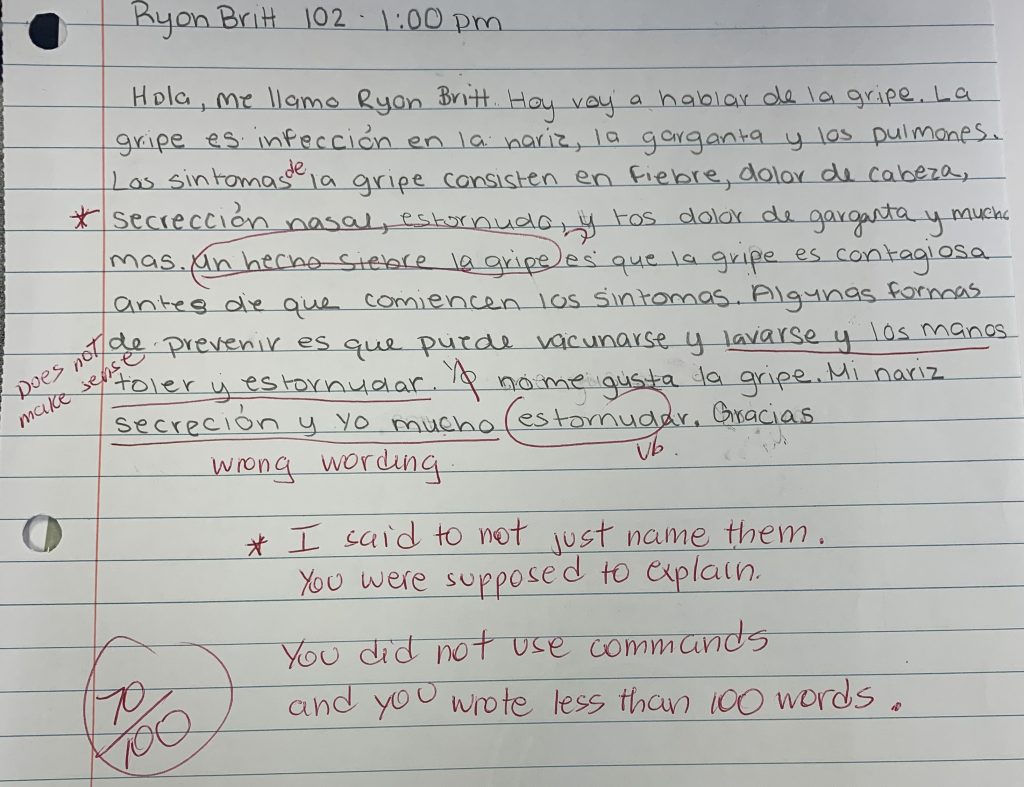 Ryon Britt 102 · 1:00 pm
Hola, me llamo Ryon Britt. Hoy voy a hablar de la gripe. La
gripe es infección en la nariz, la garganta y los pulmones.
Los sintomas de la gripe consisten en fiebre, dolor de cabeza,
* secrección nasal, estornudo, y tos dolor de garganta y mucho
mas. un hecho siebre la gripe es que la gripe es contagiosa
antes die que comiencen los sintomas. Algunas formas
de prevenir es que puede vacunarse y lavarse y los manos
Does not make sense
toler y estornudar. Yo no me gusta la gripe. Mi nariz
secreción y yo mucho estornudar. Gracias
vb.
wrong wording.
* I said to not just name them.
You were supposed to explain.
You did not use commands
and you wrote less than 100 words.
70/100